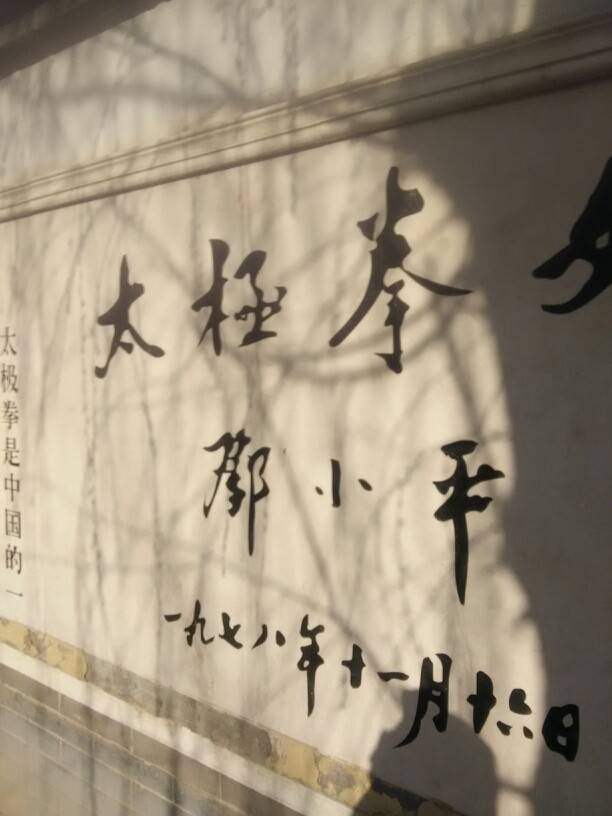 太極拳
鄧小平
一九七八年十一月十六日
太极拳是中国的一